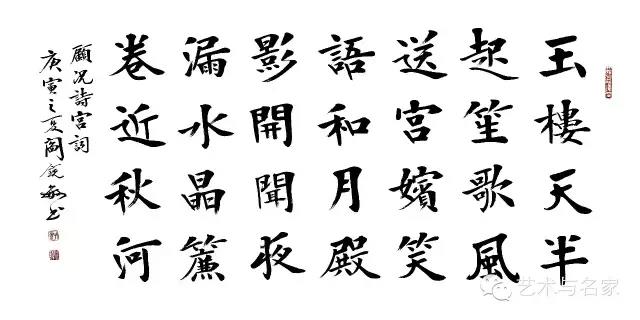 玉樓天半
起笙歌風
送宮嬪笑
語和月殿
影開聞夜
漏水晶簾
卷近秋河
顧况詩宮詞
庚寅之夏
艺术与名家